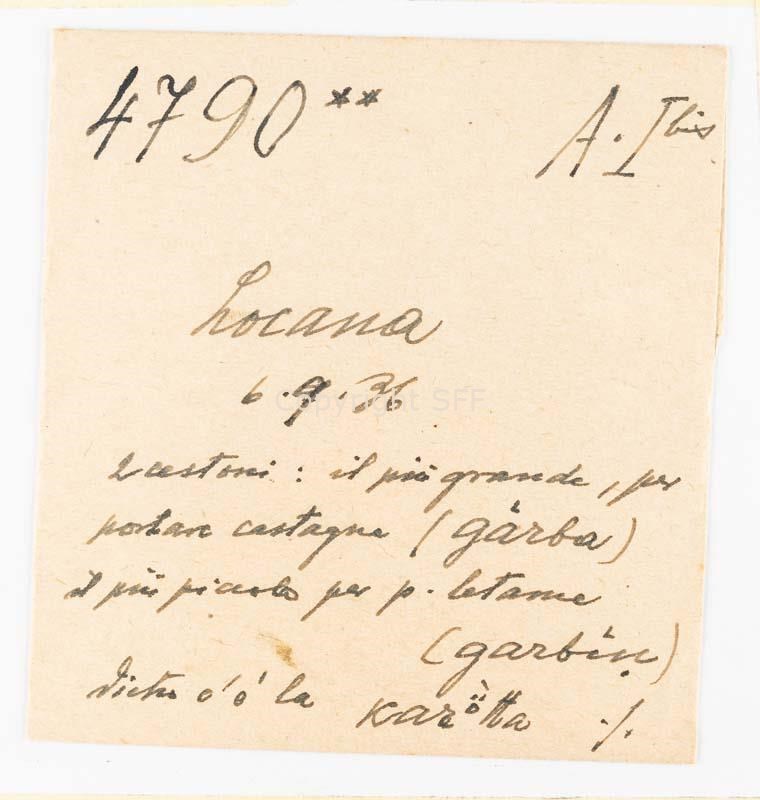 4790** A. I bis
Locana
6.9.36
Copyright SFF
2 cestoni : il più grande, per
portare castagne (gàrba)
il più piccolo per p. letame
(garbíṇ)
dietro c'è la karö̀tta ./.